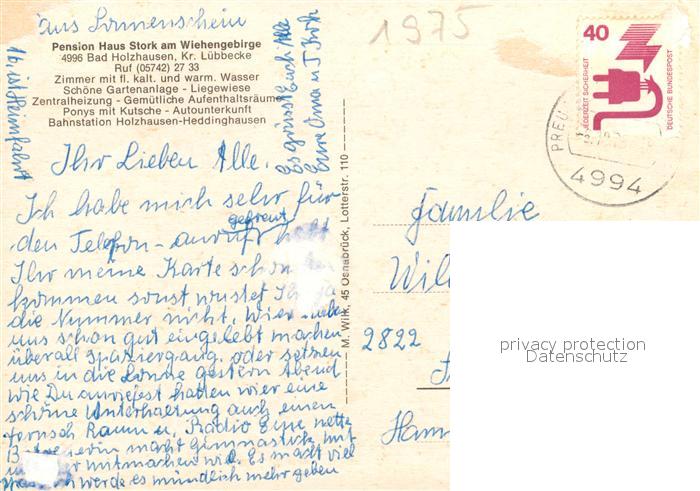 aus Sonnenschein
1975
Pension Haus Stork am Wiehengebirge
4996 Bad Holzhausen, Kr. Lübbecke
Ruf (05742) 27 33
Zimmer mit fl. kalt. und warm. Wasser
Schöne Gartenanlage - Liegewiese
Zentralheizung - Gemütliche Aufenthaltsräume
Ponys mit Kutsche - Autounterkunft
Bahnstation Holzhausen-Heddinghausen
16 ist Heimfahrt
Es grüsst Euch Alle
Eure Oma u T
Ihr Lieben Alle.
Ich habe mich sehr für
gefreut
den Telefon-anruf
Ihr meine Karte schon
bekommen sonst wustet Ihr ja
die Nummer nicht. Wier
uns schon gut eingelebt machen
überall spaziergang. oder setzen
uns in die Sonne gestern Abend
wie Du anriefest hatten wier eine
schöne Unterhaltung auch einen
fernseh Raum u. Radio Eine nette
macht Gimnastik mit
mitmachen wil. Es macht viel
werde es mündlich mehr geben
M. Wilk, 45 Osnabrück, Lotterstr. 110
40
JEDERZEIT SICHERHEIT
DEUTSCHE BUNDESPOST
PREU
4994
Familie
Wil
2822
Ham
privacy protection
Datenschutz